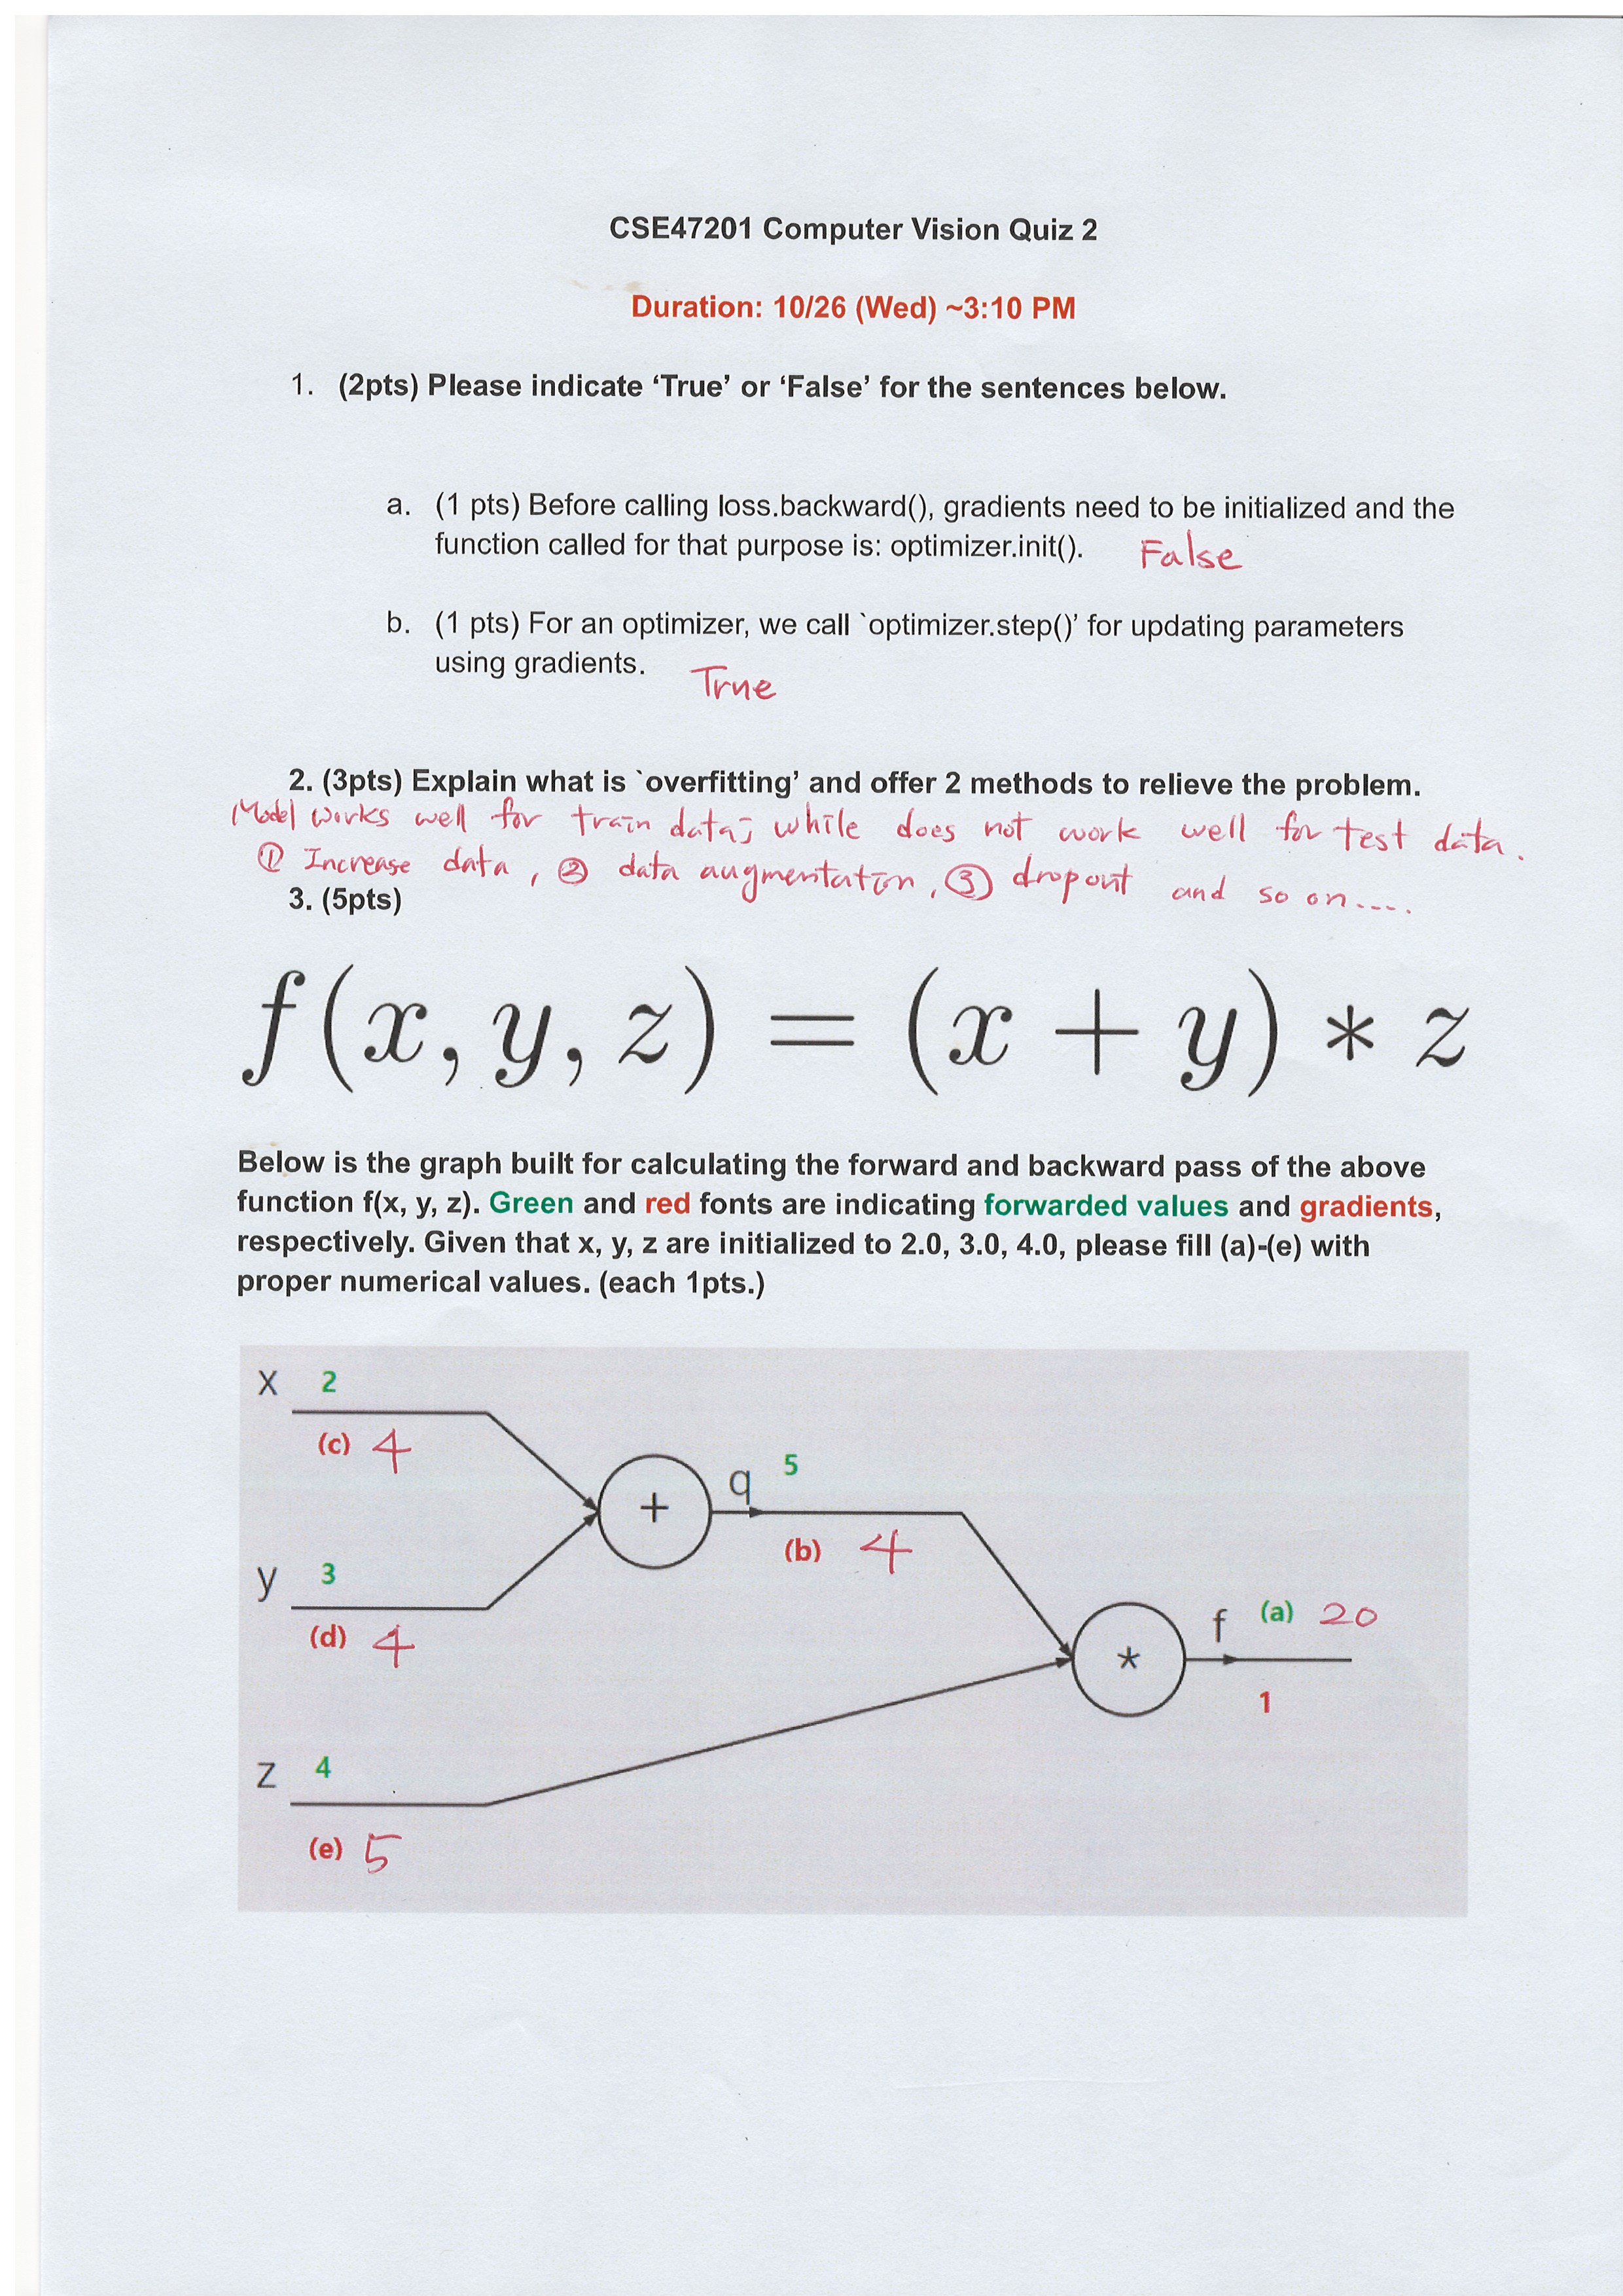 CSE47201 Computer Vision Quiz 2
Duration: 10/26 (Wed) ~3:10 PM
1. (2pts) Please indicate ‘True’ or ‘False’ for the sentences below.
a. (1 pts) Before calling loss.backward(), gradients need to be initialized and the
function called for that purpose is: optimizer.init(). False
b. (1 pts) For an optimizer, we call `optimizer.step()’ for updating parameters
using gradients. True
2. (3pts) Explain what is `overfitting’ and offer 2 methods to relieve the problem.
Model works well for train data; while does not work well for test data.
① Increase data, ② data augmentation, ③ dropout and so on....
3. (5pts)
f(x, y, z) = (x + y) * z
Below is the graph built for calculating the forward and backward pass of the above
function f(x, y, z). Green and red fonts are indicating forwarded values and gradients,
respectively. Given that x, y, z are initialized to 2.0, 3.0, 4.0, please fill (a)-(e) with
proper numerical values. (each 1pts.)
x 2
(c) 4
+
q 5
(b) 4
y 3
(d) 4
*
f (a) 20
1
z 4
(e) 5